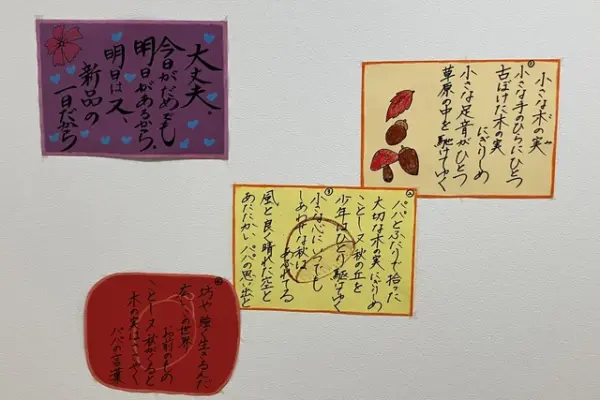 大丈夫、
今日がだめでも
明日があるから、
明日は又、
新品の
一日だから
①
小さな木の実
小さな手のひらにひとつ
古ぼけた木の実
にぎりしめ
小さな足音がひとつ
草原の中を駆けてゆく
②
パパとふたりで拾った
大切な木の実にぎりしめ
ことし又秋の丘を
少年はひとり駆けてゆく
③
小さな心にいつでも
しあわせな秋は
あふれてる
風と良く晴れた空と
あたたかいパパの思い出と
④
坊や強く生きるんだ
広いこの世界
お前のもの
ことし又秋がくると
木の実はささやく
パパの言葉